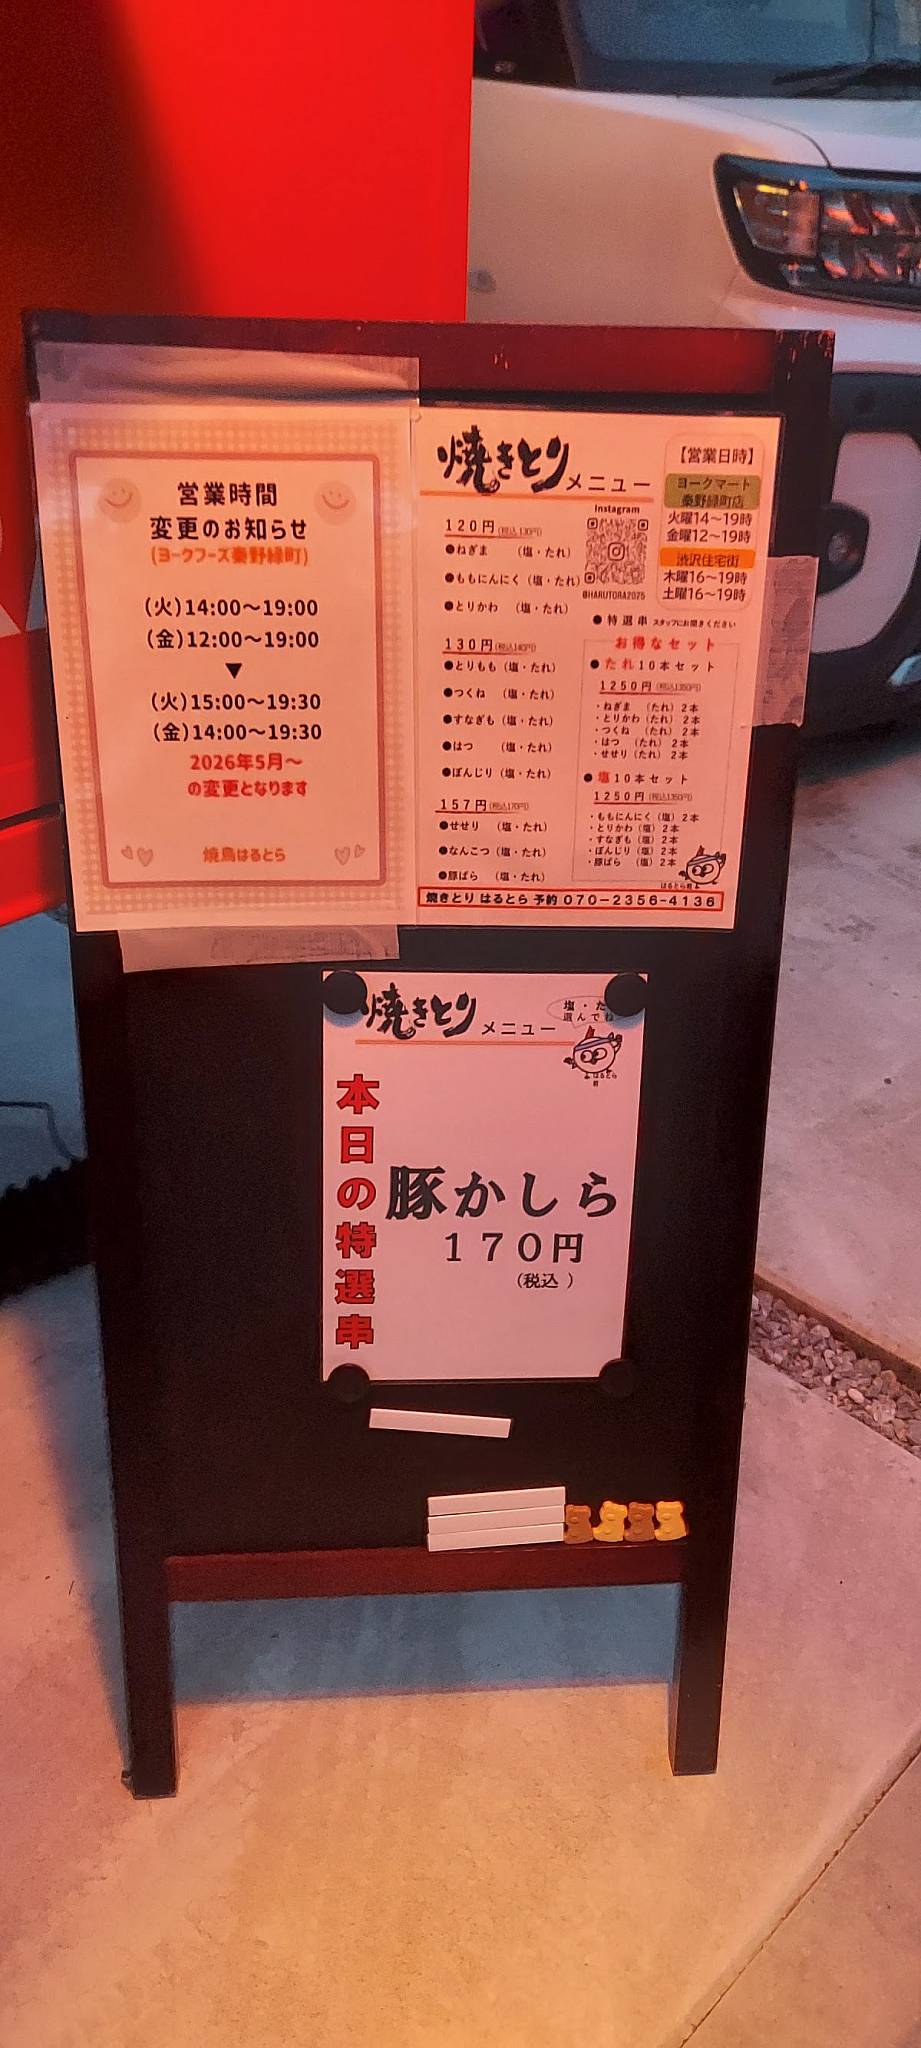 営業時間
変更のお知らせ
(ヨークフーズ秦野緑町)
(火)14:00～19:00
(金)12:00～19:00
▼
(火)15:00～19:30
(金)14:00～19:30
2026年5月～
の変更となります
焼鳥はるとら
焼きとり メニュー
120円(税込130円)
●ねぎま (塩・たれ)
●ももにんにく(塩・たれ)
●とりかわ (塩・たれ)
130円(税込140円)
●とりもも(塩・たれ)
●つくね (塩・たれ)
●すなぎも(塩・たれ)
●はつ (塩・たれ)
●ぼんじり(塩・たれ)
157円(税込170円)
●せせり (塩・たれ)
●なんこつ(塩・たれ)
●豚ばら (塩・たれ)
Instagram
@HARUTORA2025
【営業日時】
ヨークマート
秦野緑町店
火曜14～19時
金曜12～19時
渋沢住宅街
木曜16～19時
土曜16～19時
●特選串 スタッフにお聞きください
お得なセット
●たれ10本セット
1250円(税込1350円)
・ねぎま (たれ) 2本
・とりかわ(たれ) 2本
・つくね (たれ) 2本
・はつ (たれ) 2本
・せせり(たれ) 2本
●塩10本セット
1250円(税込1350円)
・ももにんにく(塩) 2本
・とりかわ(塩) 2本
・すなぎも(塩) 2本
・ぼんじり(塩) 2本
・豚ばら (塩) 2本
はるとら君
焼きとり はるとら 予約 070-2356-4136
焼きとり メニュー
塩・た
選んでね
はるとら
君
本日の特選串
豚かしら
170円
(税込)